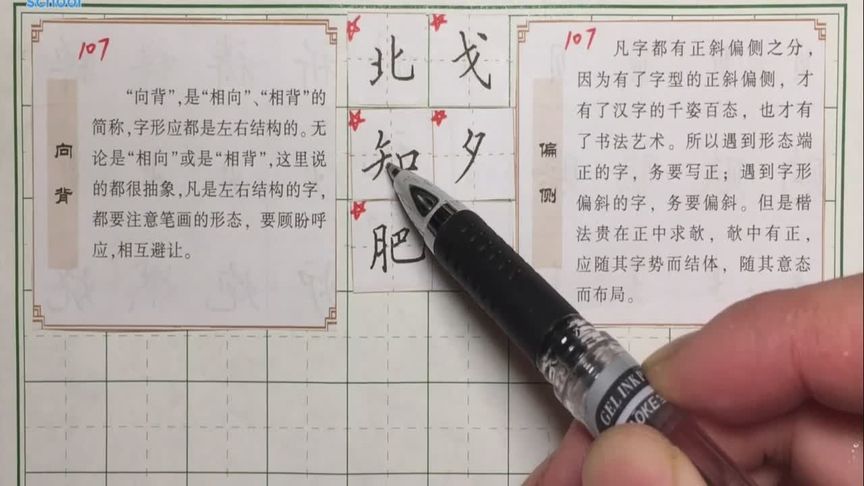 school
107
向背
“向背”,是“相向”、“相背”的
简称,字形应都是左右结构的。无
论是“相向”或是“相背”,这里说
的都很抽象,凡是左右结构的字,
都要注意笔画的形态,要顾盼呼
应,相互避让。
北 戈
知 夕
肥
107
偏侧
凡字都有正斜偏侧之分,
因为有了字型的正斜偏侧,才
有了汉字的千姿百态,也才有
了书法艺术。所以遇到形态端
正的字,务要写正;遇到字形
偏斜的字,务要偏斜。但是楷
法贵在正中求欹,欹中有正,
应随其字势而结体,随其意态
而布局。
GEL INK